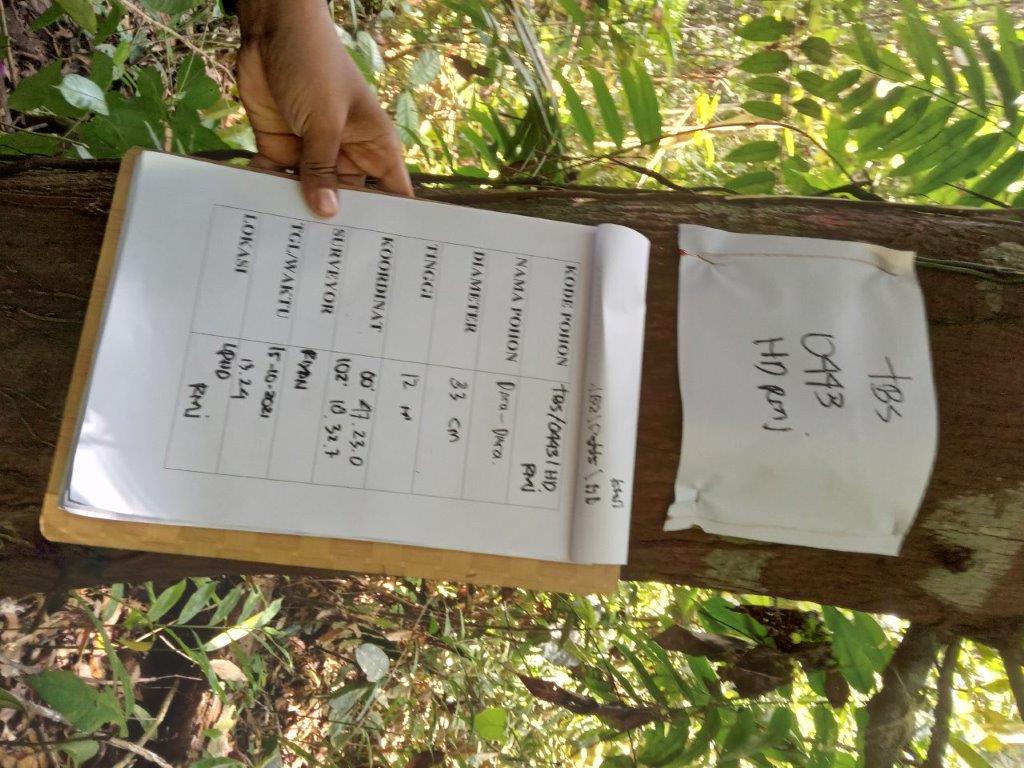 tBS
0443
HD RMJ
KODE POHON tBS/0443/HD
RMJ
NAMA POHON Dara-Dara.
DIAMETER 33 cm
TINGGI 12 m
KOORDINAT 00° 47.23.0
102° 10.32.7
SURVEYOR RIYAN
TGL/WAKTU 15-10-2021
13.24
LOKASI LPHD
RMJ